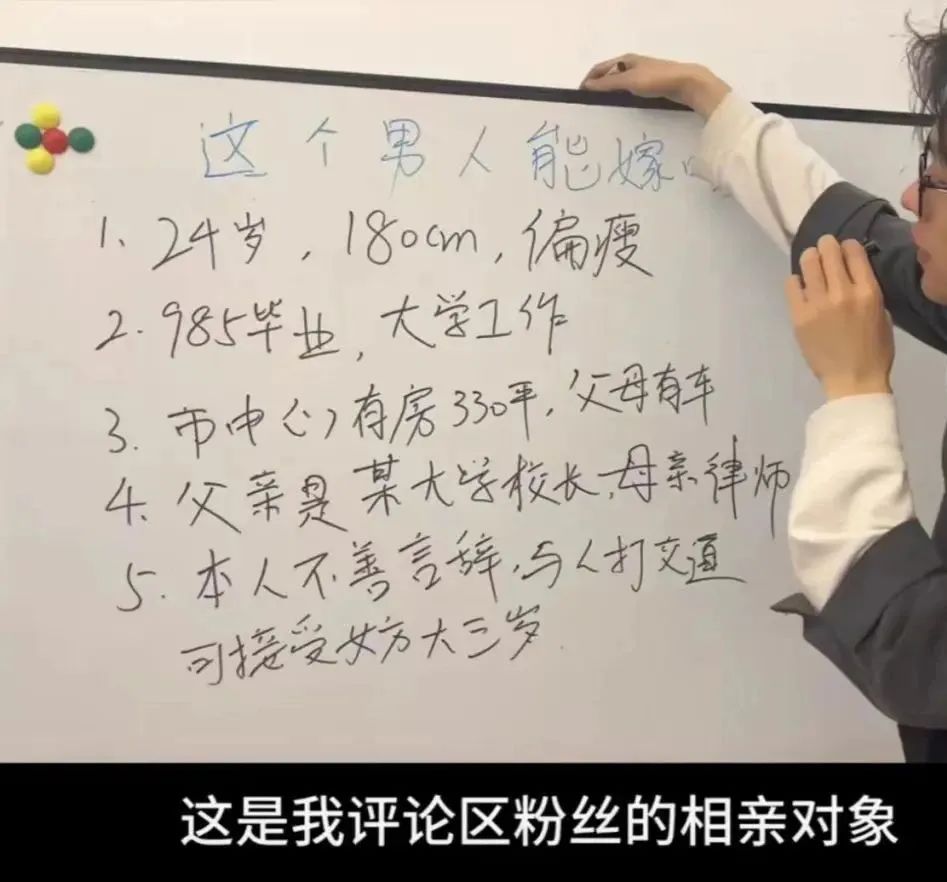 这个男人能嫁
1、24岁，180cm，偏瘦
2.985毕业，大学工作
3.市中心有房330平，父母有车
4.父亲是某大学校长，母亲律师
5.本人不善言辞，与人打交道
可接受女方大三岁
这是我评论区粉丝的相亲对象